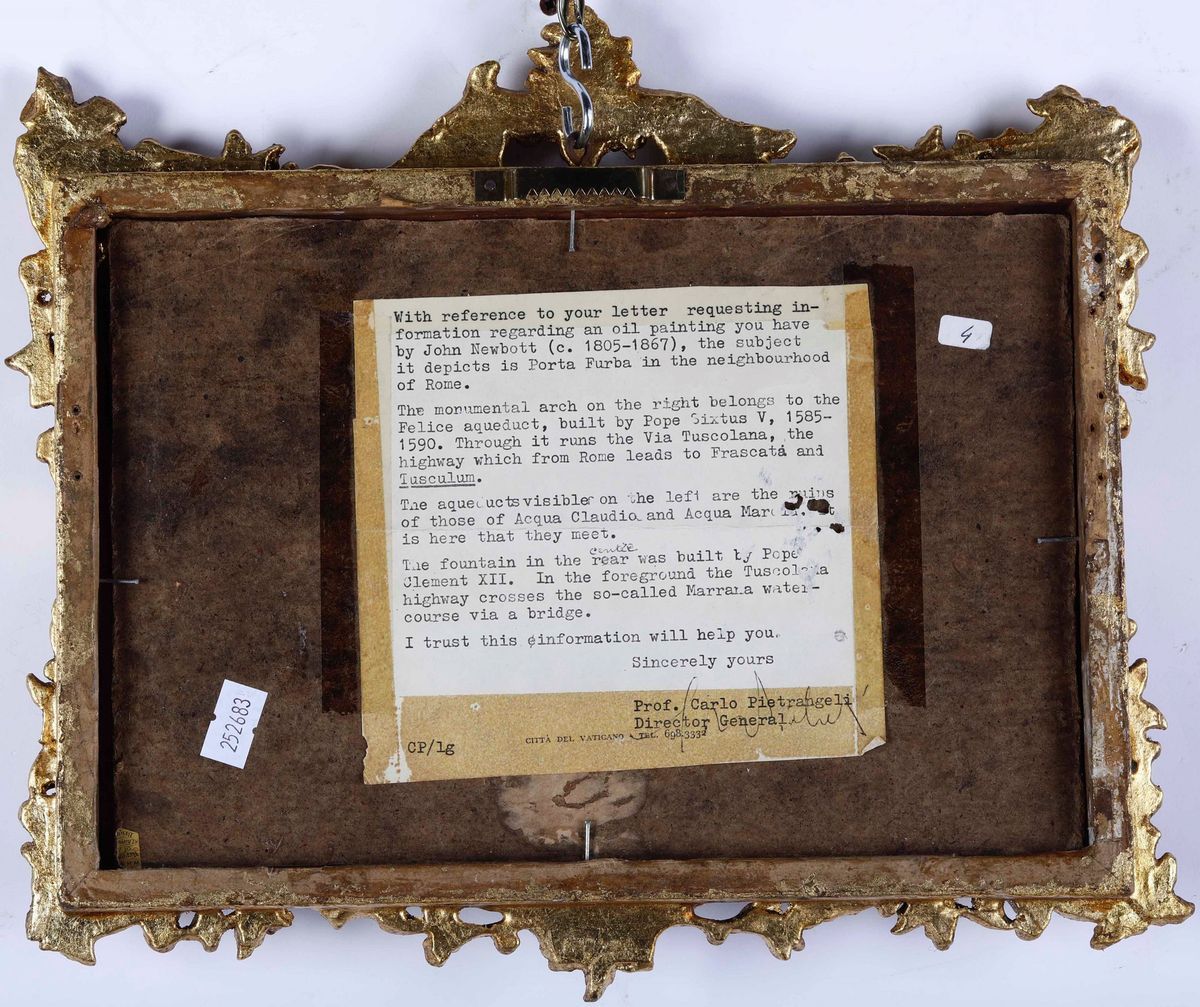 With reference to your letter requesting in-
formation regarding an oil painting you have
by John Newbott (c. 1805-1867), the subject
it depicts is Porta Furba in the neighbourhood
of Rome.
The monumental arch on the right belongs to the
Felice aqueduct, built by Pope Sixtus V, 1585-
1590. Through it runs the Via Tuscolana, the
highway which from Rome leads to Frascata and
Tusculum.
The aqueducts visible on the left are the ruins
of those of Acqua Claudia and Acqua
is here that they meet.
centre
The fountain in the rear was built by Pope
Clement XII. In the foreground the Tuscolana
highway crosses the so-called Marrana water-
course via a bridge.
I trust this information will help you.
Sincerely yours
Prof. Carlo Pietrangeli
Director General
CP/lg
CITTÀ DEL VATICANO - TEL. 698.3332
4
252683